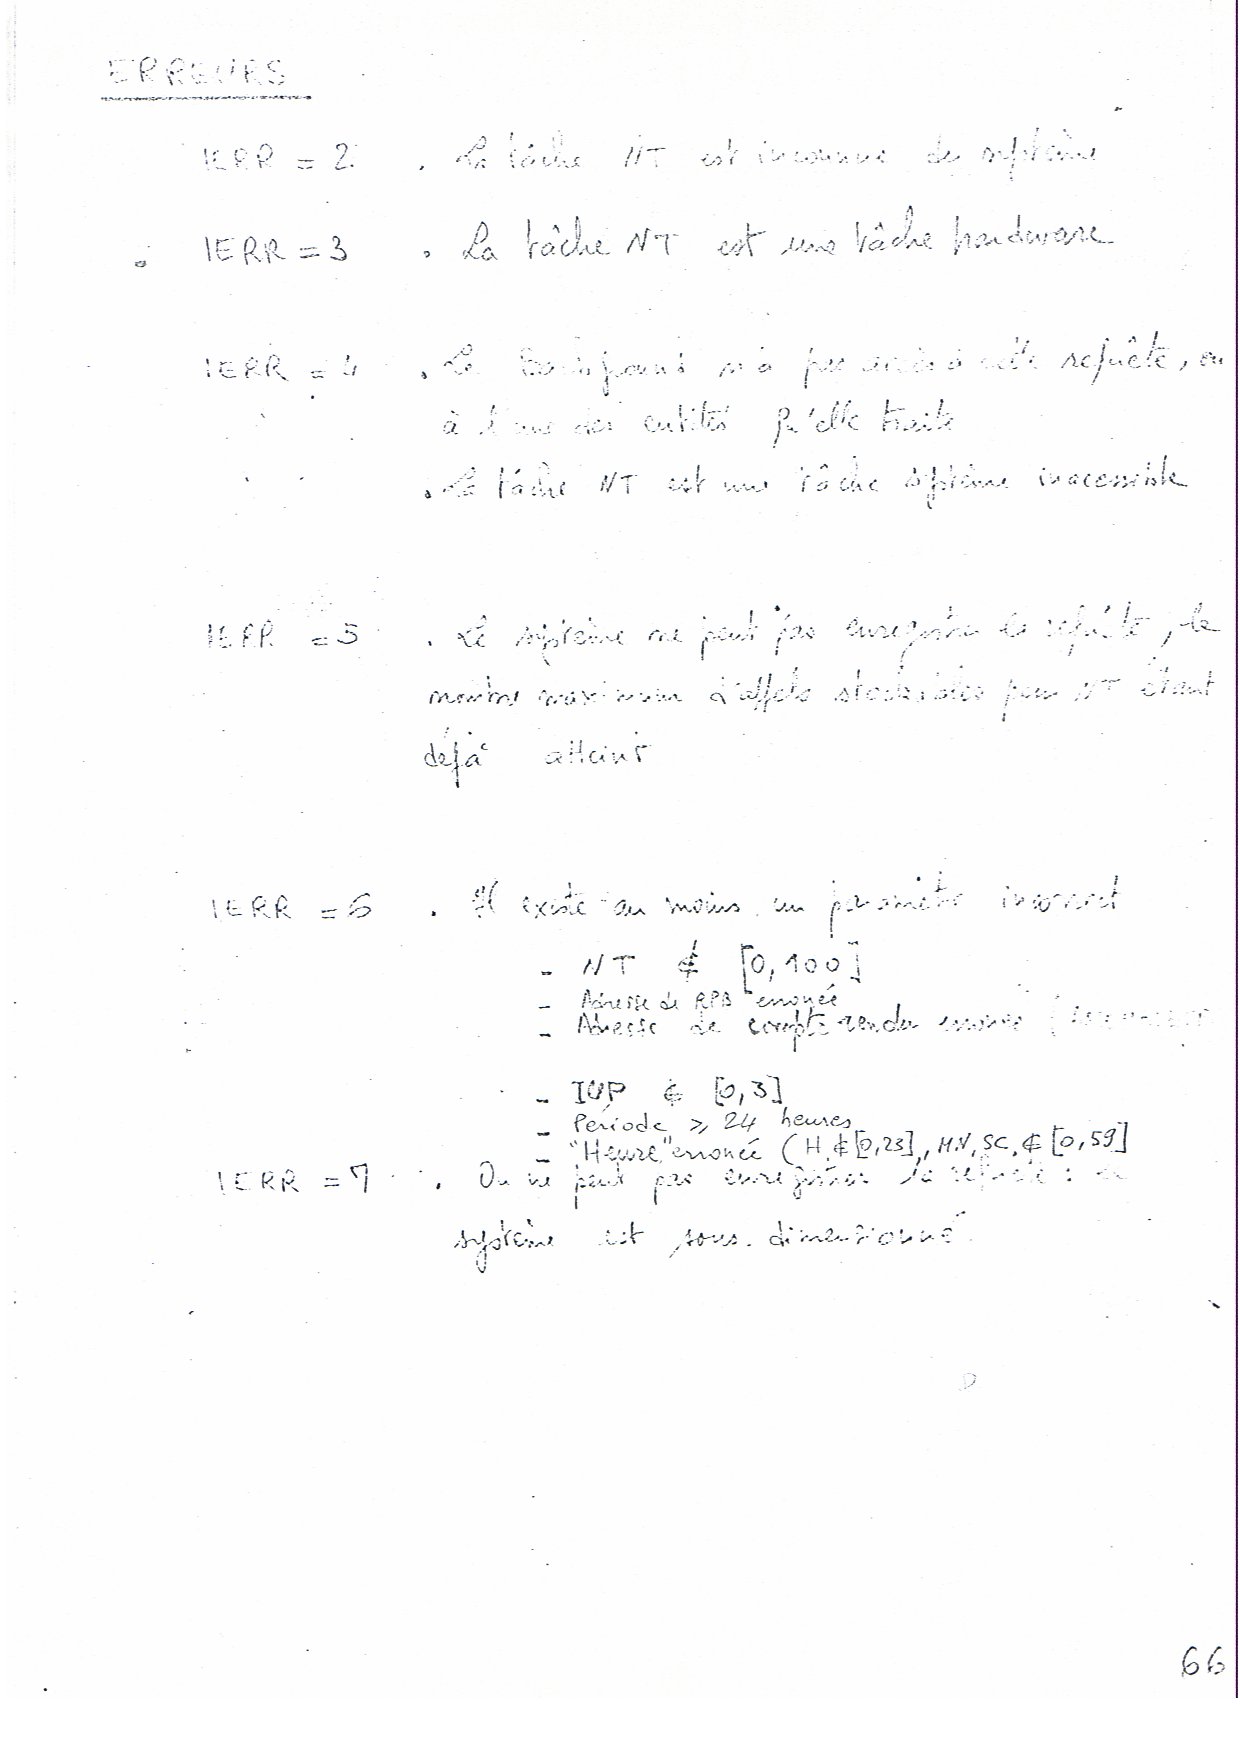 ERREURS
IERR = 2 . La tâche NT est inconnue du système
IERR = 3 . La tâche NT est une tâche hardware
IERR = 4 . Le Background n'a pas accès à cette requête, ou
à l'une des entités qu'elle traite
. La tâche NT est une tâche système inacessible
IERR = 5 . Le système ne peut pas enregistrer la requête, le
nombre maximum d'appels stockables pour NT étant
déjà atteint
IERR = 6 . Il existe au moins un paramètre incorrect
- NT ∉ [0,100]
- Adresse de RPB erronée
- Adresse de compte rendu erronée (
- IUP ∉ [0,3]
- Période ≥ 24 heures
- "Heure" erronée (H ∉ [0,23], MN, SC, ∉ [0,59]
IERR = 7 . On ne peut pas enregistrer la requête : le
système est sous-dimensionné.
66